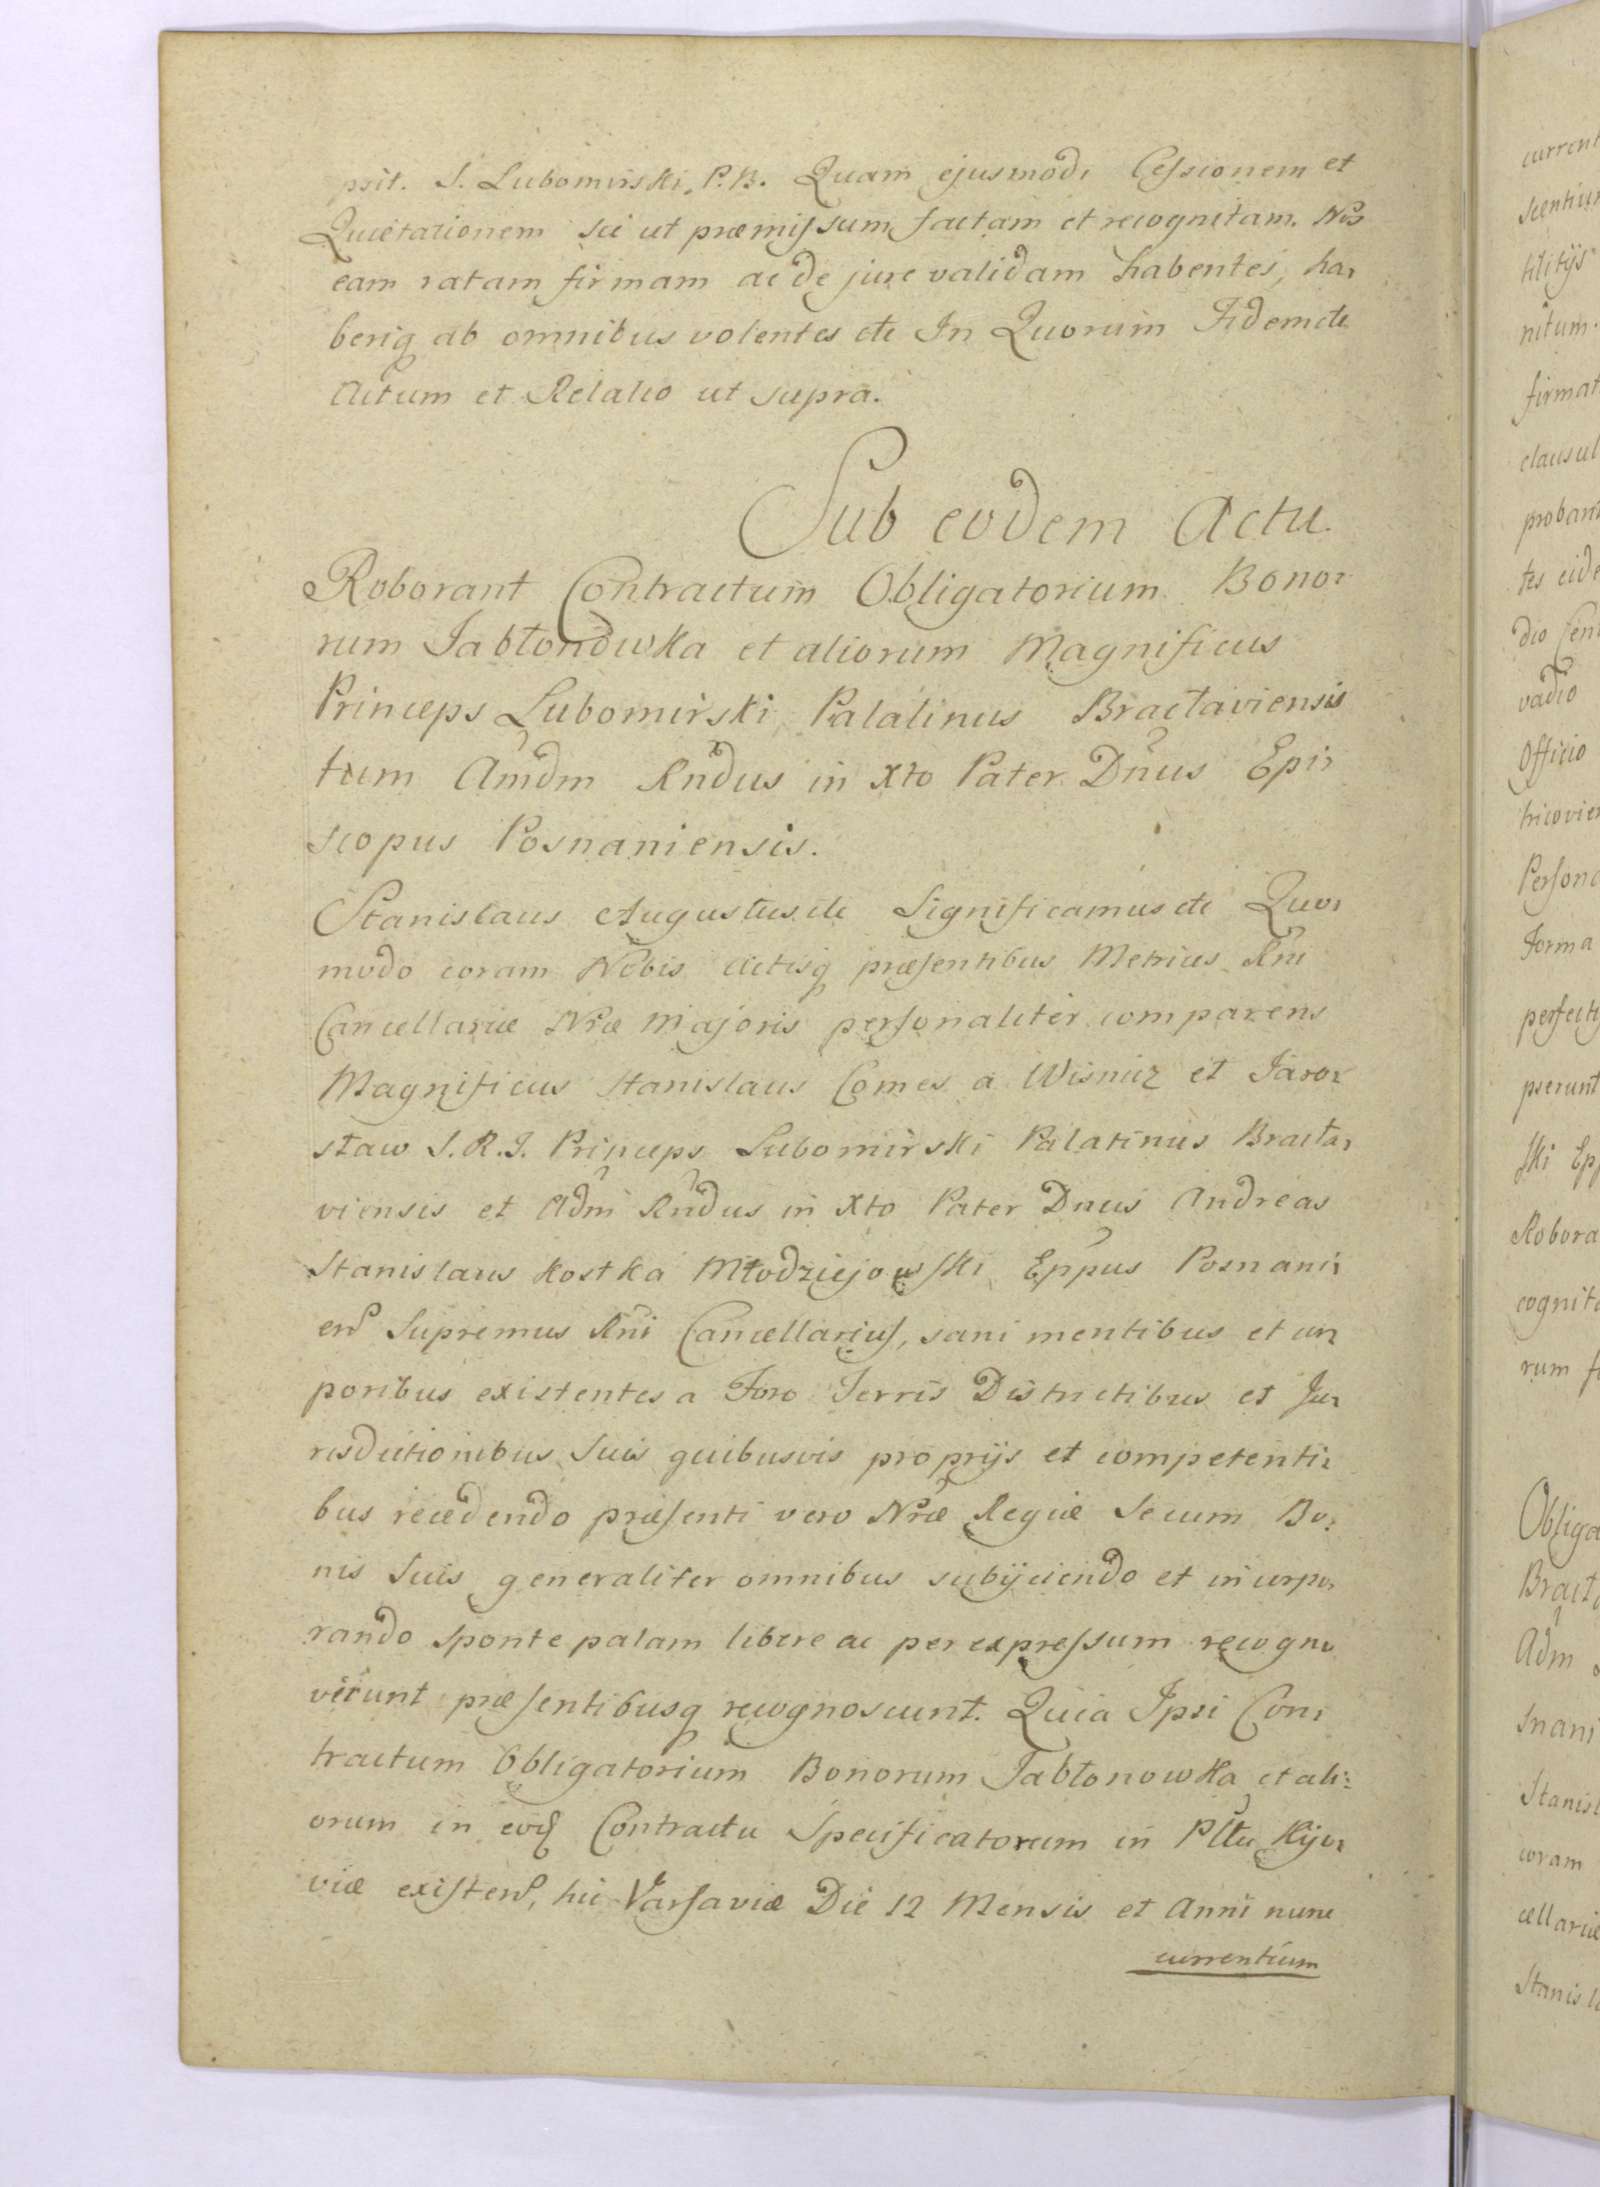 psit. S. Lubomirski, P. B. Quam ejusmodi Cessionem et
Quietationem sic ut præmissum factam et recognitam. Nos
eam ratam firmam ac de jure validam habentes, ha-
beriq ab omnibus volentes etc In Quorum Fidem etc
Actum et Relatio ut supra.
Sub eodem Actu.
Roborant Contractum Obligatorium Bono-
rum Jabłonowka et aliorum Magnificus
Princeps Lubomirski Palatinus Bractaviensis
tum Amdm Rndus in Xto Pater Dnus Epi-
scopus Posnaniensis.
Stanislaus Augustus etc Significamus etc Quo-
modo coram Nobis Actisq præsentibus Metrices Rni
Cancellariæ Nræ Majoris personaliter comparens
Magnificus Stanislaus Comes a Wisnicz et Jaro-
staw S. R. I. Princeps Lubomirski Palatinus Bracta-
viensis et Adm Rndus in Xto Pater Dnus Andreas
Stanislaus Kostka Młodziejowski Eppus Posnani-
en Supremus Rni Cancellarius, sani mentibus et cor-
poribus existentes a Foro Terris Districtibus et Ju-
risdictionibus Suis quibusvis proprijs et competenti-
bus recedendo præsenti vero Nræ Regiæ Se cum Bo-
nis Suis generaliter omnibus subijciendo et incorpo-
rando sponte palam libere ac per expressum recogno
verunt præsentibusq recognoscunt. Quia Ipsi Con-
tractum Obligatorium Bonorum Jabłonowka et ali-
orum in eod Contractu Specificatorum in Pltu Kijo-
viæ existen, hic Varsaviæ Die 12 Mensis et Anni nunc
currentium